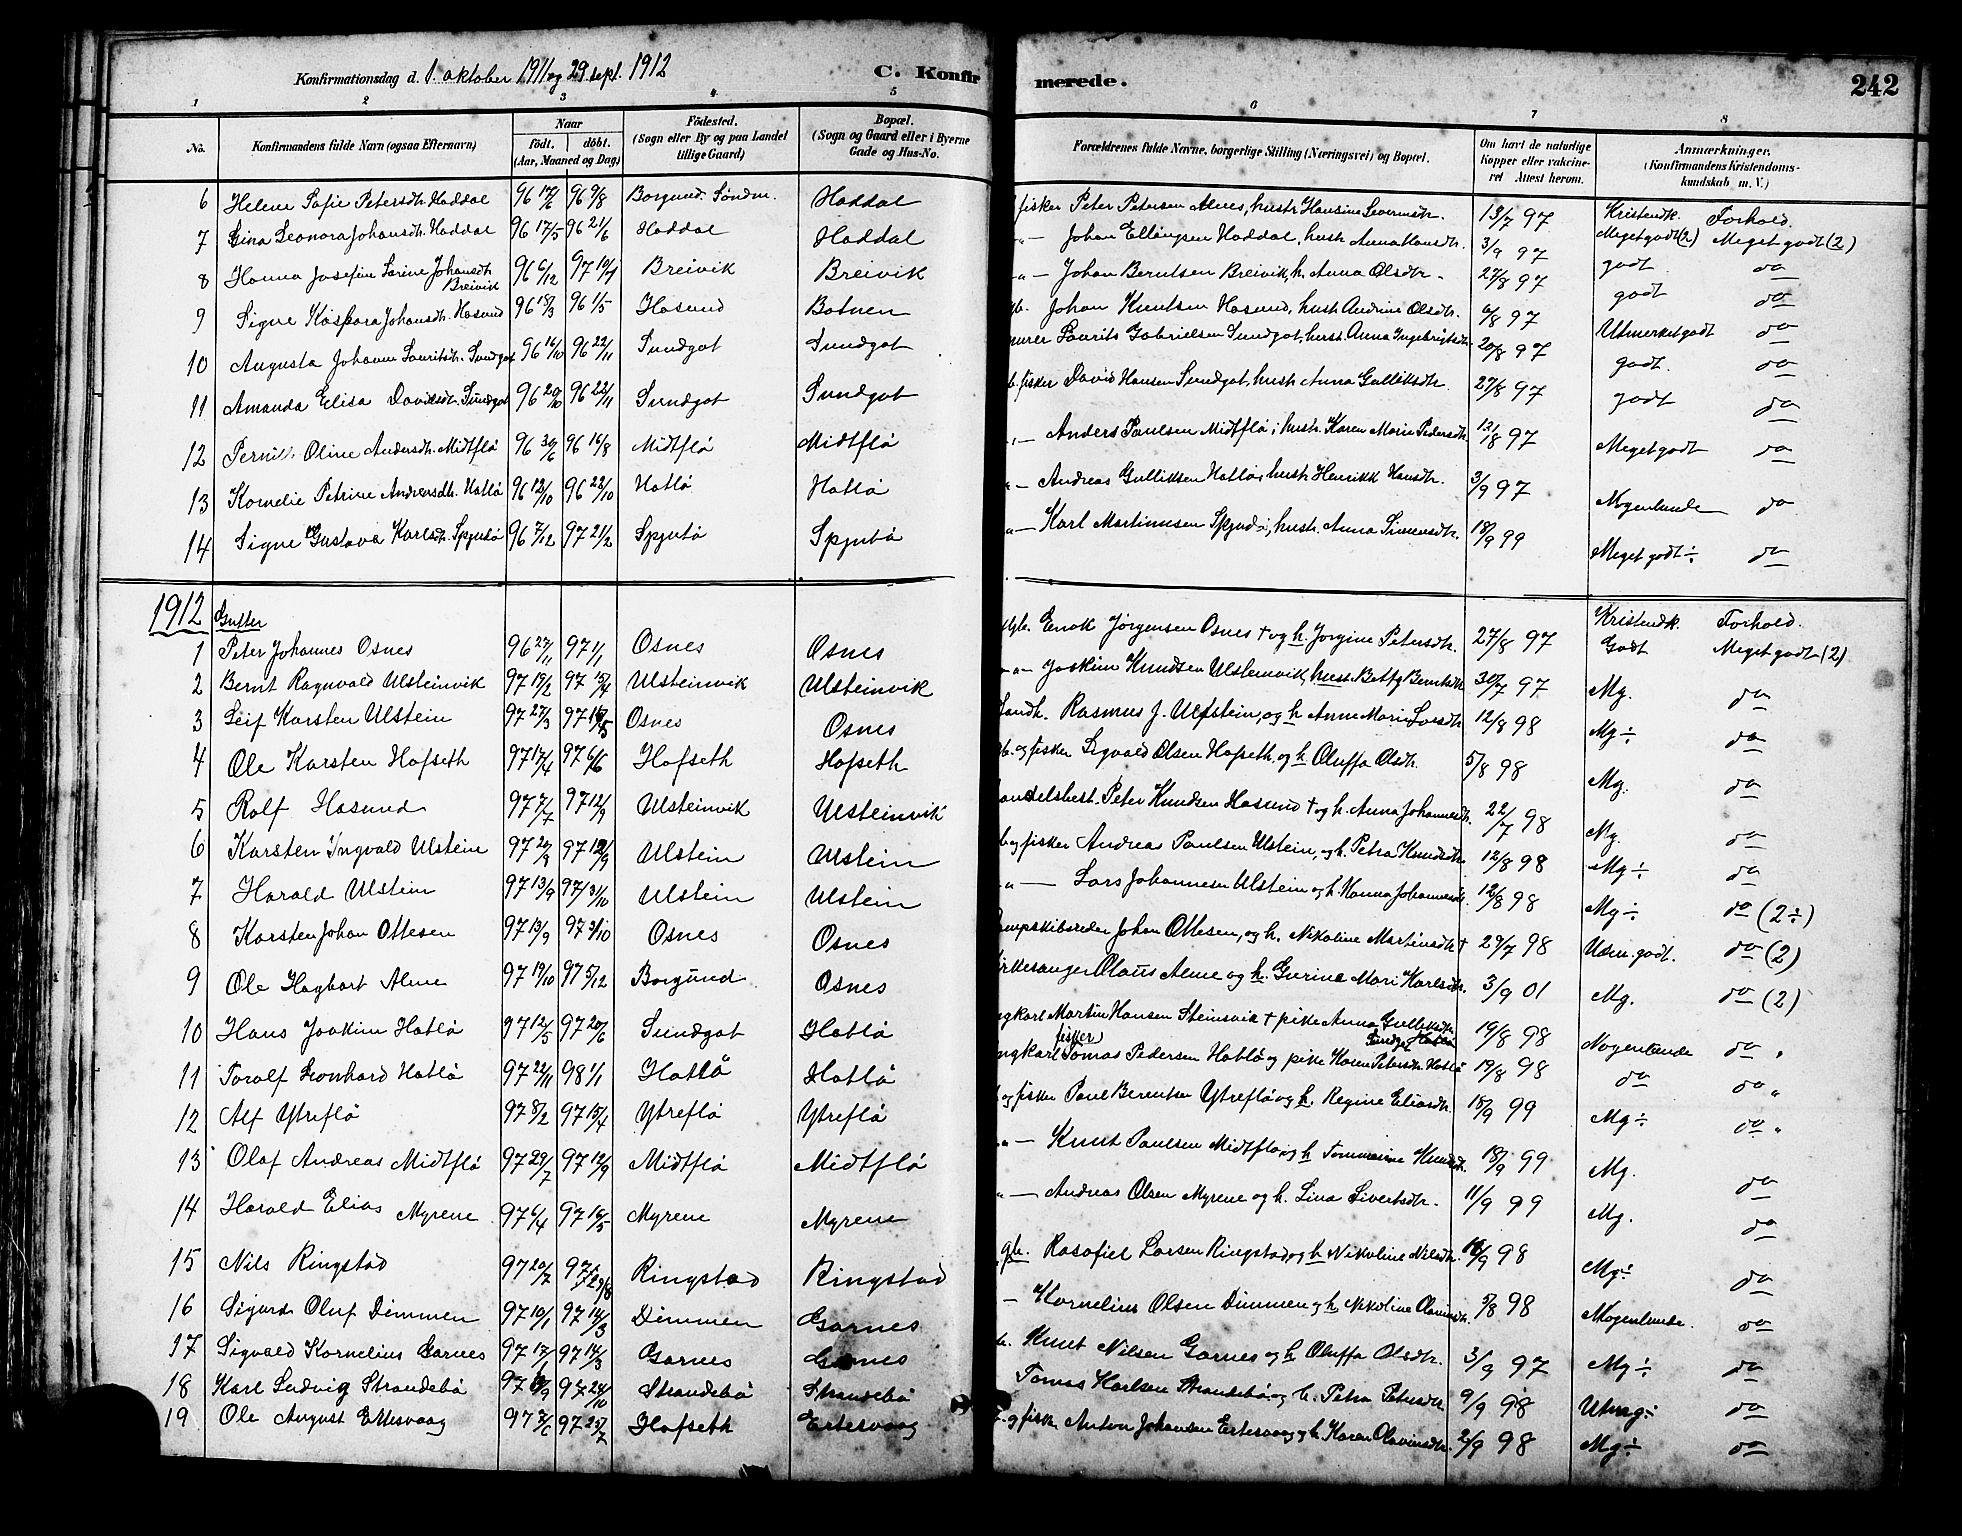 Konfirmationsdag d. 1. oktober 1911 og 29 sept. 1912 C. Konfirmerede. 242
1 2 3 4 5 6 7 8
No. Konfirmandens fulde Navn (ogsaa Efternavn) Naar födt. döbt. (Aar, Maaned og Dag) Födested. (Sogn eller By og paa Landet tillige Gaard) Bopæl. (Sogn og Gaard eller i Byerne Gade og Hus-No. Forældrenes fulde Navne, borgerlige Stilling (Næringsvei) og Bopæl. Om havt de naturlige Kopper eller vakcineret Attest herom. Anmærkninger. (Konfirmandens Kristendomskundskab m. V.)
Kristendk. Forhold.
6 Helene Sofie Petersdtr. Haddal 96 17/6 96 9/8 Borgund. Søndm. Haddal fisker Peter Petersen Alnes, hustr Hansine Severinsdtr. 13/7 97 Meget godt (2) Meget godt (2)
7 Lina Leonora Johansdtr. Haddal 96 17/5 96 21/6 Haddal Haddal -"- Johan Ellingsen Haddal, hustr Anna Hansdtr. 3/9 97 godt do
8 Hanna Josefine Sarine Johansdtr Breivik 96 6/12 97 10/1 Breivik Breivik -"- Johan Berntsen Breivik, h. Anna Olsdtr. 27/8 97 godt do
9 Signe Kaspara Johansdtr. Hasund 96 18/3 96 1/5 Hasund Botnen gb. Johan Knutsen Hasund, hustr Andrine Olsdtr. 6/8 97 Utmerket godt do
10 Augusta Johanne Lauritsdtr. Sundgot 96 16/10 96 22/11 Sundgot Sundgot murer Laurits Gabrielsen Sundgot, hustr. Anna Ingebrigtsdtr. 20/8 97 godt. do
11 Amanda Elisa Davidsdtr. Sundgot 96 20/10 96 22/11 Sundgot Sundgot fisker David Hansen Sundgot, hustr Anna Gulliksdtr. 27/8 97 godt do
12 Pernille Oline Andersdtr. Midtflø 96 30/6 96 16/8 Midtflø Midtflø -"- Anders Paulsen Midtflø, hustr. Karen Marie Pedersdtr 12/8 97 Meget godt do
13 Kornelie Petrine Andreasdtr. Hatlø 96 12/10 96 22/10 Hatlø Hatlø -"- Andreas Gulliksen Hatlø, hustr Henrikk Hansdtr. 3/9 97 Nogenlunde do
14 Signe Gustava Karlsdtr. Spjutø 96 7/12 97 21/2 Spjutø Spjutø -"- Karl Martinusen Spjutø, hustr. Anna Simensdtr. 18/9 99 Meget godt ÷ do
1912 Gutter Kristendk. Forhold.
1 Peter Johannes Osnes 96 27/11 97 1/1 Osnes Osnes gb. Enok Jørgensen Osnes + og h. Jørgine Petersdtr. 27/8 97 Godt Meget godt (2)
2 Bernt Ragnvald Ulsteinvik 97 19/2 97 15/4 Ulsteinvik Ulsteinvik -"- Joakim Knudsen Ulsteinvik, hust. Betty Berntsdtr 30/7 97 Mg. do
3 Leif Karsten Ulstein 97 27/3 Osnes Osnes Landh. Rasmus J. Ulstein, og h Anne Marie 12/8 98 Mg ÷ do
4 Ole Karsten Hofseth 97 17/4 97 6/6 Hofseth Hofseth gb. og fisker Sigvald Olsen Hofseth og h Oluffa Olsdtr. 5/8 98 Mg. do
5 Rolf Hasund 97 7/7 97 12/9 Ulsteinvik Ulsteinvik Handelsbest. Peter Knudsen Hasund + og h. Anna Johannesdtr. 22/7 98 Mg. do
6 Karsten Ingvald Ulstein 97 97 12/9 Ulstein Ulstein og fisker Andreas Paulsen Ulstein, og h. Petra Knudsdtr. 12/8 98 Mg ÷ do
7 Harald Ulstein 97 13/9 97 31/10 Ulstein Ulstein -"- Lars Johannesen Ulstein og h Hanna Johannesdtr. 12/8 98 Mg ÷ do (2÷)
8 Karsten Johan Ottesen 97 13/9 97 31/10 Osnes Osnes Dampskibsreder Johan Ottesen, og h. Nikoline Martinsdtr + 29/7 98 Udm. godt. do (2)
9 Ole Hagbart Alme 97 19/10 97 5/12 Borgund Osnes Kirkesanger Olaus Alme og h. Gurine Mari Karlsdtr. 3/9 01 Mg. do (2)
10 Hans Joakim Hatlø 97 12/5 97 20/6 Sundgot Hatlø ungkarl Martin Hansen Steinsvik + pike Anna Gulliksdtr. Hatlø 19/8 98 Nogenlunde do "
11 Toralf Leonhard Hatlø 97 22/11 98 1/1 Hatlø Hatlø ungkarl fisker Tomas Pedersen Hatlø og pike Karen Petersdtr. Hatlø 19/8 98 do do "
12 Alf Ytreflø 97 8/2 97 15/4 Ytreflø Ytreflø og fisker Paul Berentsen Ytreflø og h. Regine Eliasdtr. 18/9 99 Mg ÷ do "
13 Olaf Andreas Midtflø 97 29/7 97 12/9 Midtflø Midtflø -"- Knut Paulsen Midtflø og h Tommasine Knudsdtr. 18/9 99 Mg. do
14 Harald Elias Myrene 97 6/4 97 16/5 Myrene Myrene -"- Andreas Olsen Myrene og h. Lina Sivertsdtr. 11/9 99 Mg. do
15 Nils Ringstad 97 20/7 97 29/8 Ringstad Ringstad gb. Rasafiel Larsen Ringstad og h Nikoline Nilsdtr. 98 Mg ÷ do
16 Sigurd Oluf Dimmen 97 10/1 97 14/3 Dimmen Garnes - Kornelius Olsen Dimmen og h Nikoline Olavinsdtr. 5/8 98 Nogenlunde. do
17 Sigvald Kornelius Garnes 97 17/1 97 14/3 Garnes Garnes Knut Nilsen Garnes og h Oluffa Olsdtr. 3/9 97 Mg ÷ do
18 Karl Ludvig Strandebø 97 97 24/10 Strandebø Strandebø Tomas Karlsen Strandebø og h. Petra Petersdtr 9/9 98 Utmg ÷ do
19 Ole August Ertesvaag 97 7/6 97 25/7 Hofseth Ertesvaag og fisk. Anton Johansen Ertesvaag og h. Karen Olavinsdtr. 2/9 98 Mg ÷ do